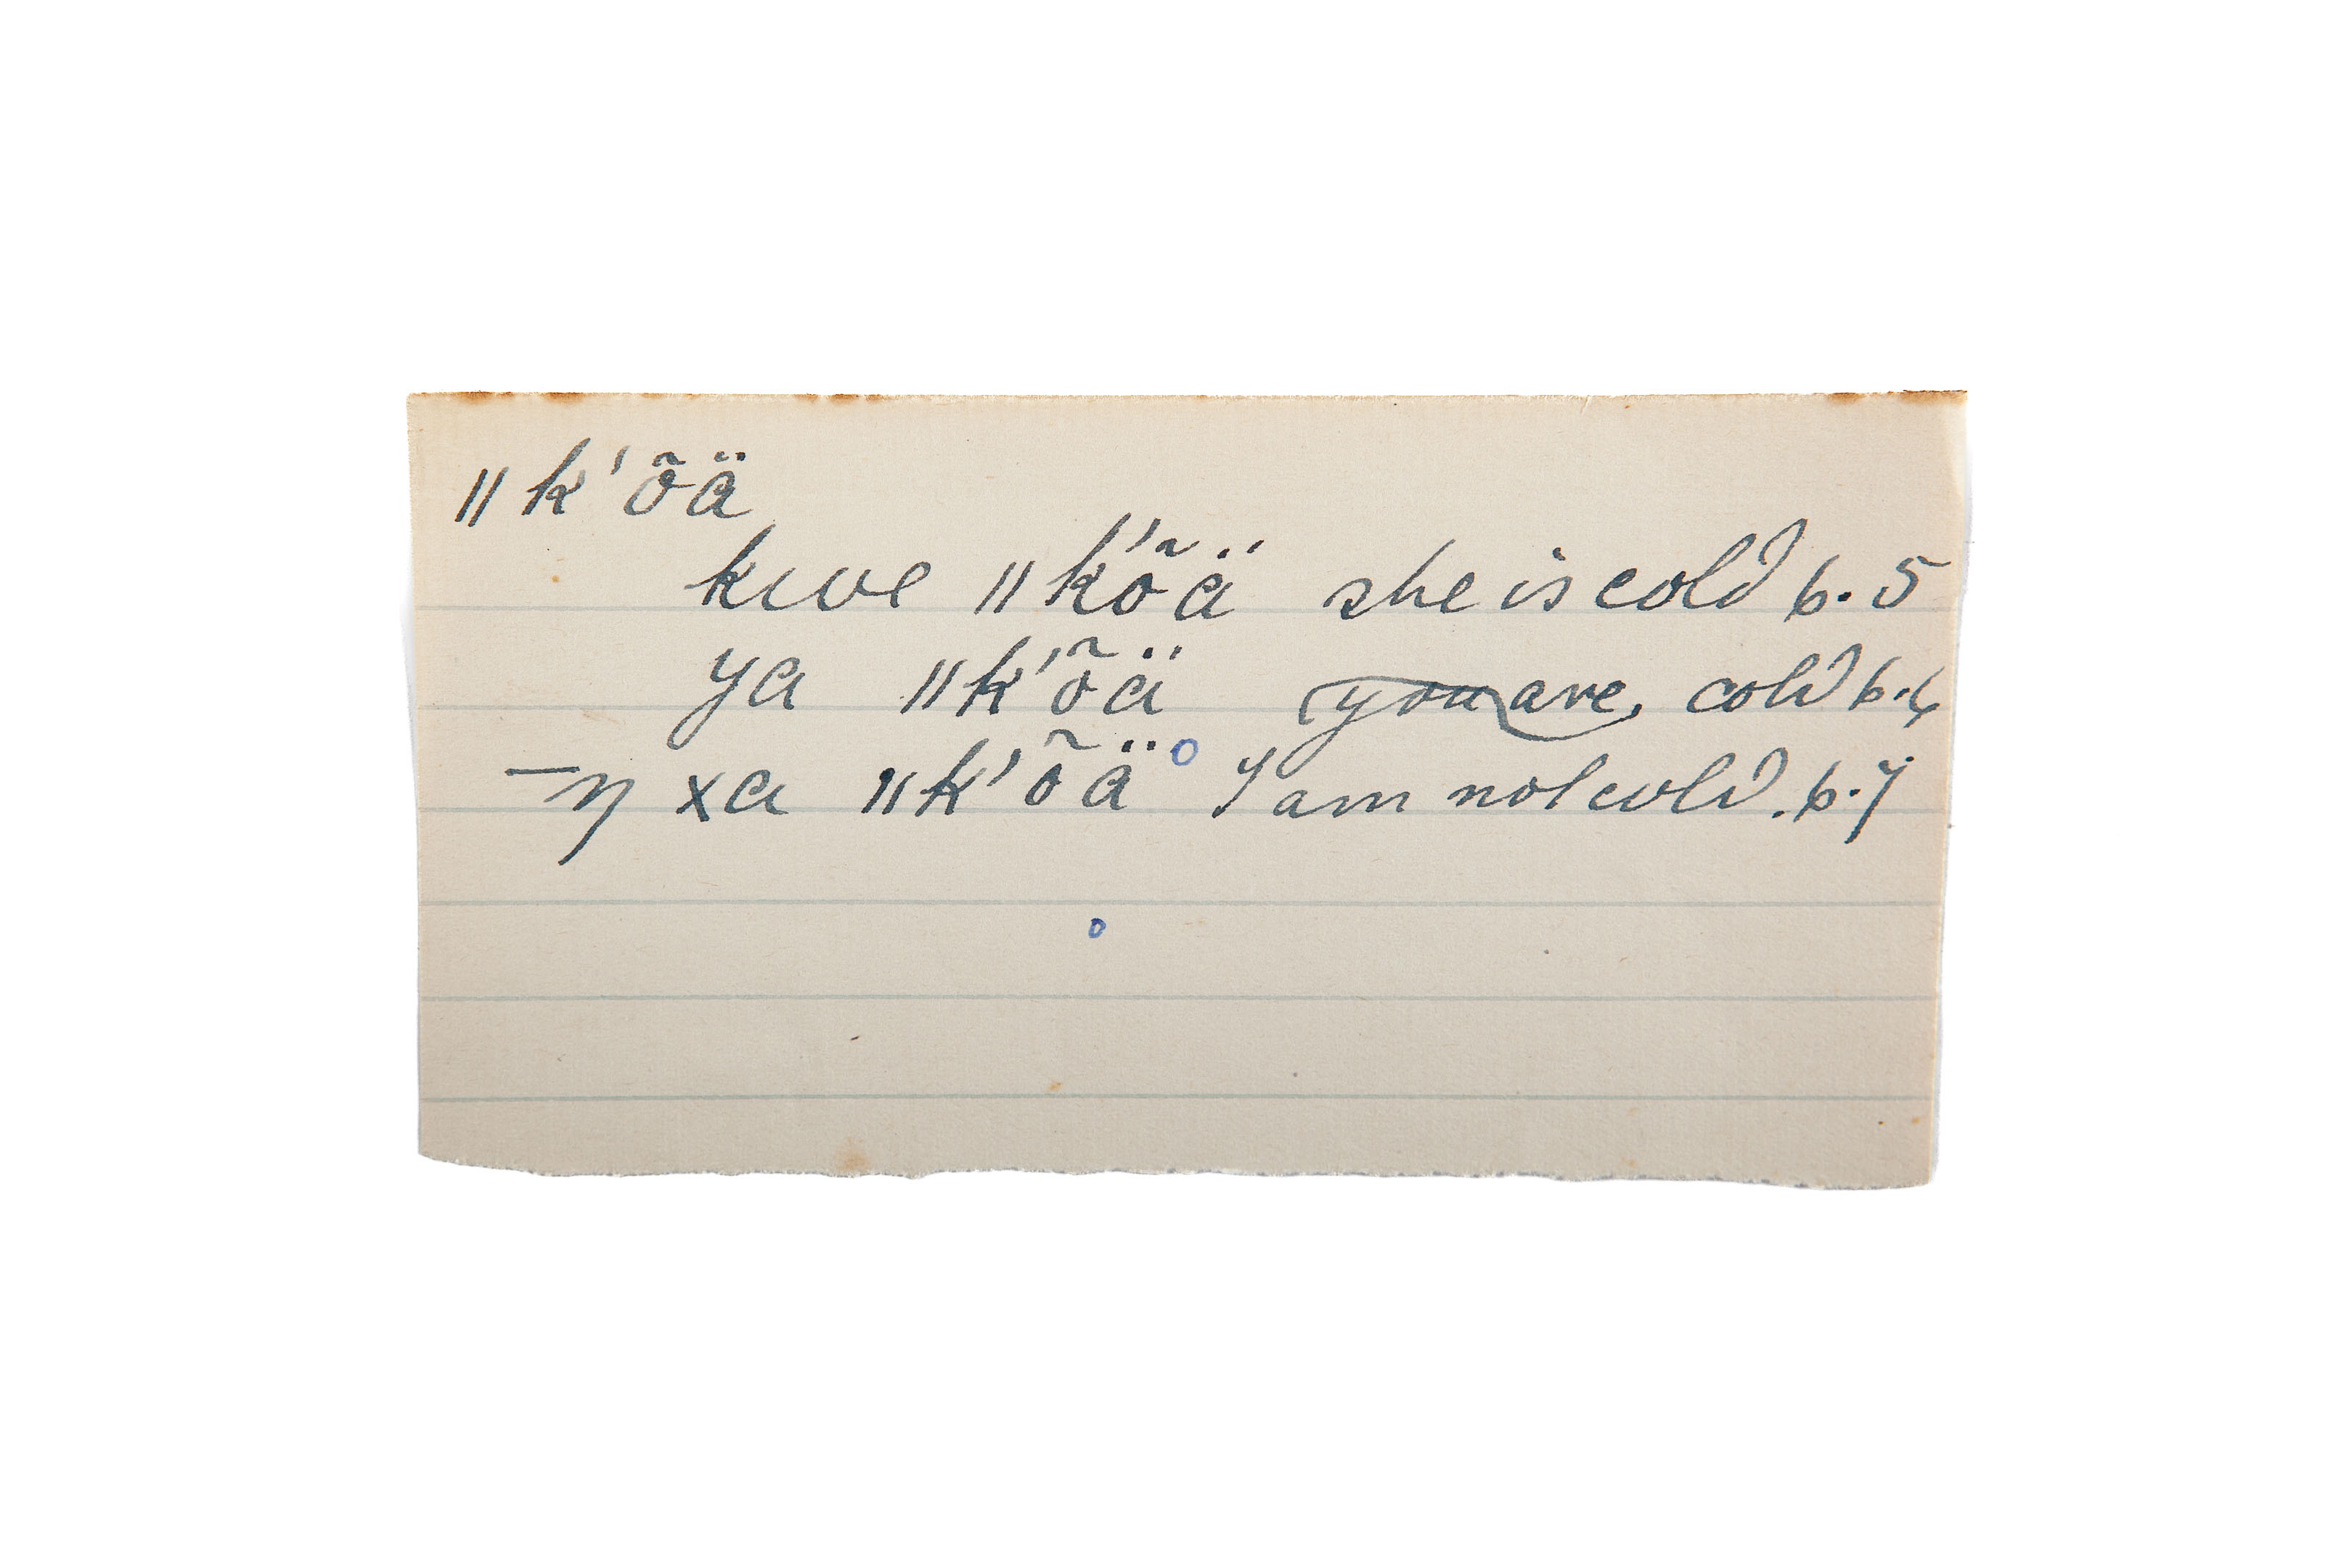 ǁk'õä
kɩve ǁk'õä she is cold 6.5
ya ǁk'õä you are, cold 6.6
—ŋ xa ǁk'õä I am not cold. 6.7